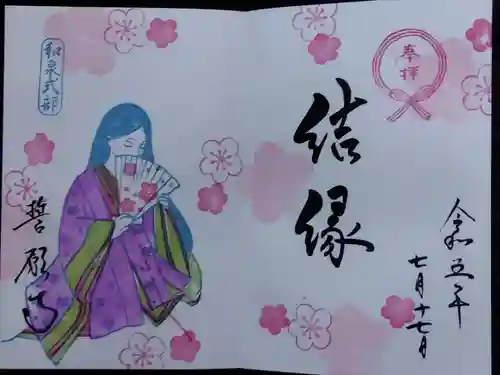 奉拝
結縁
令和五年
七月十七日
和泉式部
誓願寺